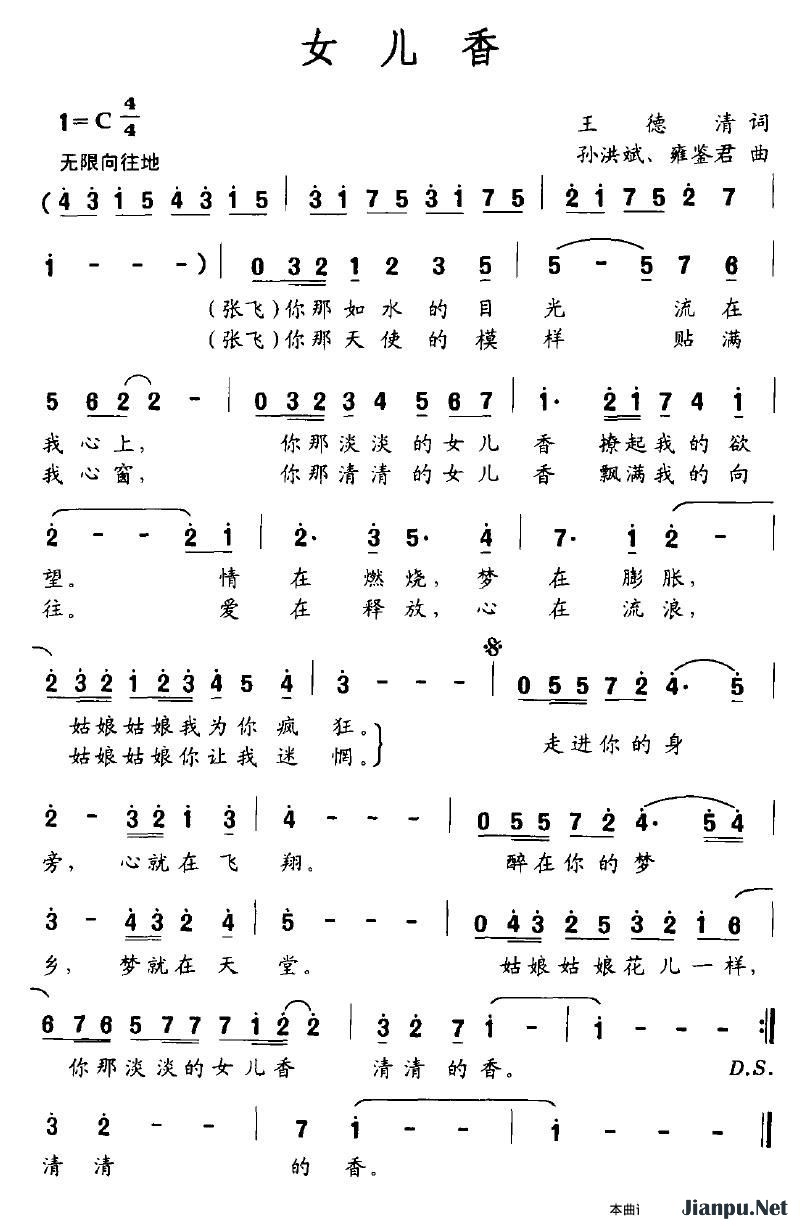 女 儿 香
1=C 4/4
王 德 清 词
无限向往地
孙洪斌、雍鉴君 曲
(4 3 1 5 4 3 1 5 | 3 1 7 5 3 1 7 5 | 2 1 7 5 2 7 |
1 - - -) | 0 3 2 1 2 3 5 | 5 - 5 7 6 |
(张飞)你那如水的目光 流在
(张飞)你那天使的模样 贴满
5 6 2 2 - | 0 3 2 3 4 5 6 7 | 1· 2 1 7 4 1 |
我心上, 你那淡淡的女儿香 撩起我的欲
我心窗, 你那清清的女儿香 飘满我的向
2 - - 2 1 | 2· 3 5· 4 | 7· 1 2 - |
望。 情在燃烧,梦在膨胀,
往。 爱在释放,心在流浪,
2 3 2 1 2 3 4 5 4 | 3 - - - | 0 5 5 7 2 4· 5 |
姑娘姑娘我为你疯狂。
走进你的身
姑娘姑娘你让我迷惘。
2 - 3 2 1 3 | 4 - - - | 0 5 5 7 2 4· 5 4 |
旁, 心就在飞翔。 醉在你的梦
3 - 4 3 2 4 | 5 - - - | 0 4 3 2 5 3 2 1 6 |
乡, 梦就在天堂。 姑娘姑娘花儿一样,
6 7 6 5 7 7 7 1 2 2 | 3 2 7 1 - | 1 - - - :||
你那淡淡的女儿香 清清的香。 D.S.
3 2 - - | 7 1 - - | 1 - - - ||
清清 的香。
本曲
Jianpu.Net